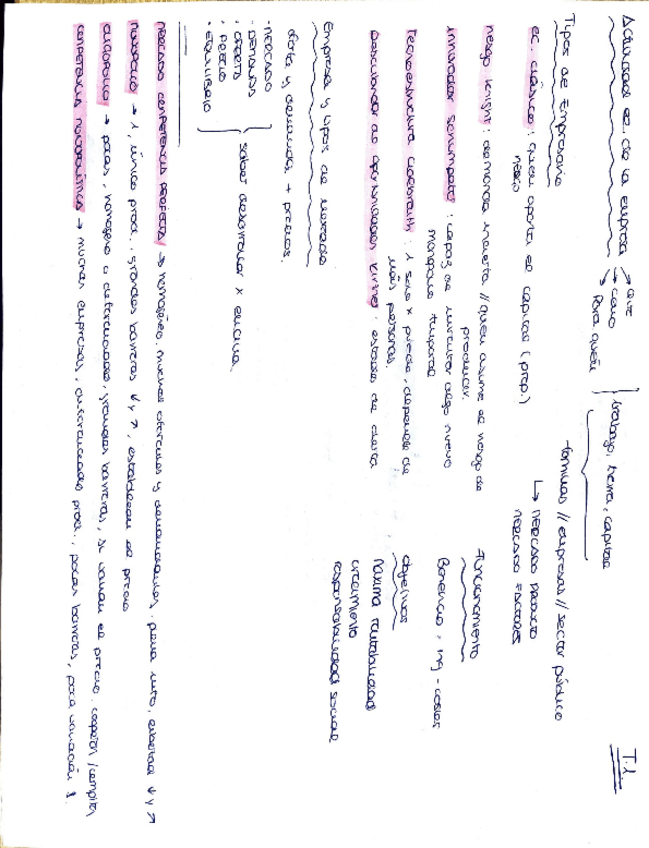 T.1.
Actividad ec. de la empresa → que
→ como
→ Para quién
} trabajo, tierra, capital
- familias // empresas // sector público
↳ MERCADO PRODUCTO
MERCADO FACTORES
Tipos de Empresario
ec. clásico: quien aporta el capital (prop.)
riesgo Knight: demanda incierta // quien asume el riesgo de
producir.
innovador schumpeter: capaz de inventar algo nuevo
monopolio temporal
Tecnoestructura Galbraith: 1 solo x puede, depende de
más personas.
Descubridor de oportunidades Kirzner: estado de alerta
Funcionamiento
Beneficio = ing - costes
objetivos
Máxima rentabilidad
crecimiento
responsabilidad social
Empresa y tipos de mercado
oferta y demanda + precios.
- MERCADO
- DEMANDA
- OFERTA
- PRECIO
- EQUILIBRIO
} saber desarrollar x encima.
MERCADO COMPETENCIA PERFECTA → homogéneo, muchos oferentes y demandantes, plena info, libertad ↓ y ↗
MONOPOLIO → 1, único prod., grandes barreras ↓ y ↗, establecen el precio
OLIGOPOLIO → pocas, homogéneo o diferenciado, grandes barreras, si varían el precio,
COMPETENCIA MONOPOLÍSTICA → muchas empresas, diferenciado prod., pocas barreras, poca variación